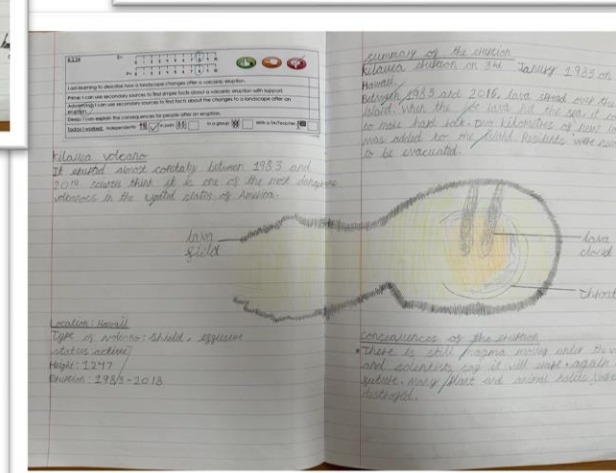 I am learning to describe how a landscape changes after a volcanic eruption.
Prime: I can use secondary sources to find simple facts about a volcanic eruption with support.
Advancing: I can use secondary sources to find facts about the changes to a landscape after an
eruption.
Deep: I can explain the consequences for people after an eruption.
Today I worked: Independently In pairs In a group With a TA/Teacher
Kilauea volcano
It erupted almost constatly between 1983 and
2018. think it is one of the most dangerous
volcanoes in the united states of America.
lava
field
Location: Hawaii
Type of volcano: shield, effusive
status: active
Height: 1247
Eruption: 1983-2018
summary of the eruption
Kilauea eruption on 3rd January 1983 on
Hawaii
Between 1983 and 2018, lava spread over the
island. when the hot lava hit the sea it
to make hard rock. two kilometres of new
was added to the island. Residents were
to be evacuated.
lava
cloud
consequences of the eruption
There is still magma moving under the
and scientists say it will erupt again
future. many plant and animal
destroyed.